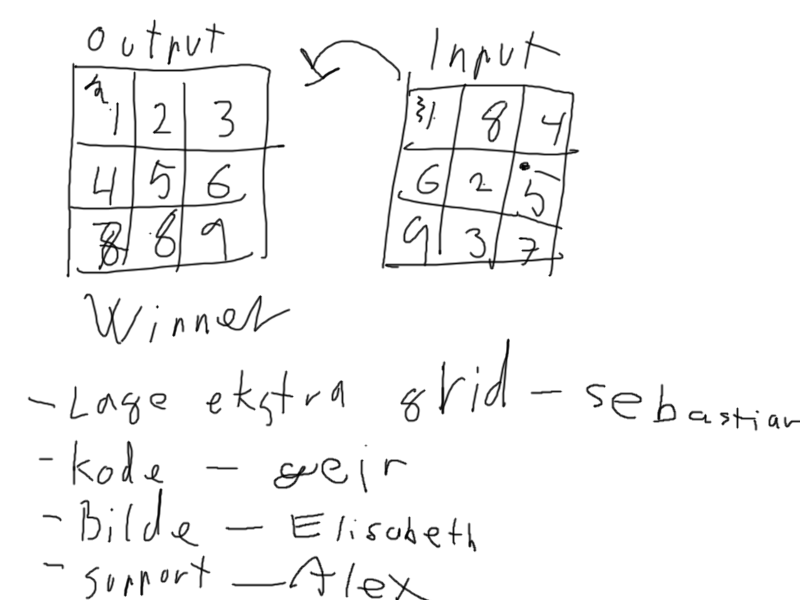 Output Input
1 2 3
4 5 6
8 8 9
1 8 4
6 2 5
9 3 7
Winner
- Lage ekstra grid - sebastian
- kode - geir
- Bilde - Elisabeth
- support - Alex